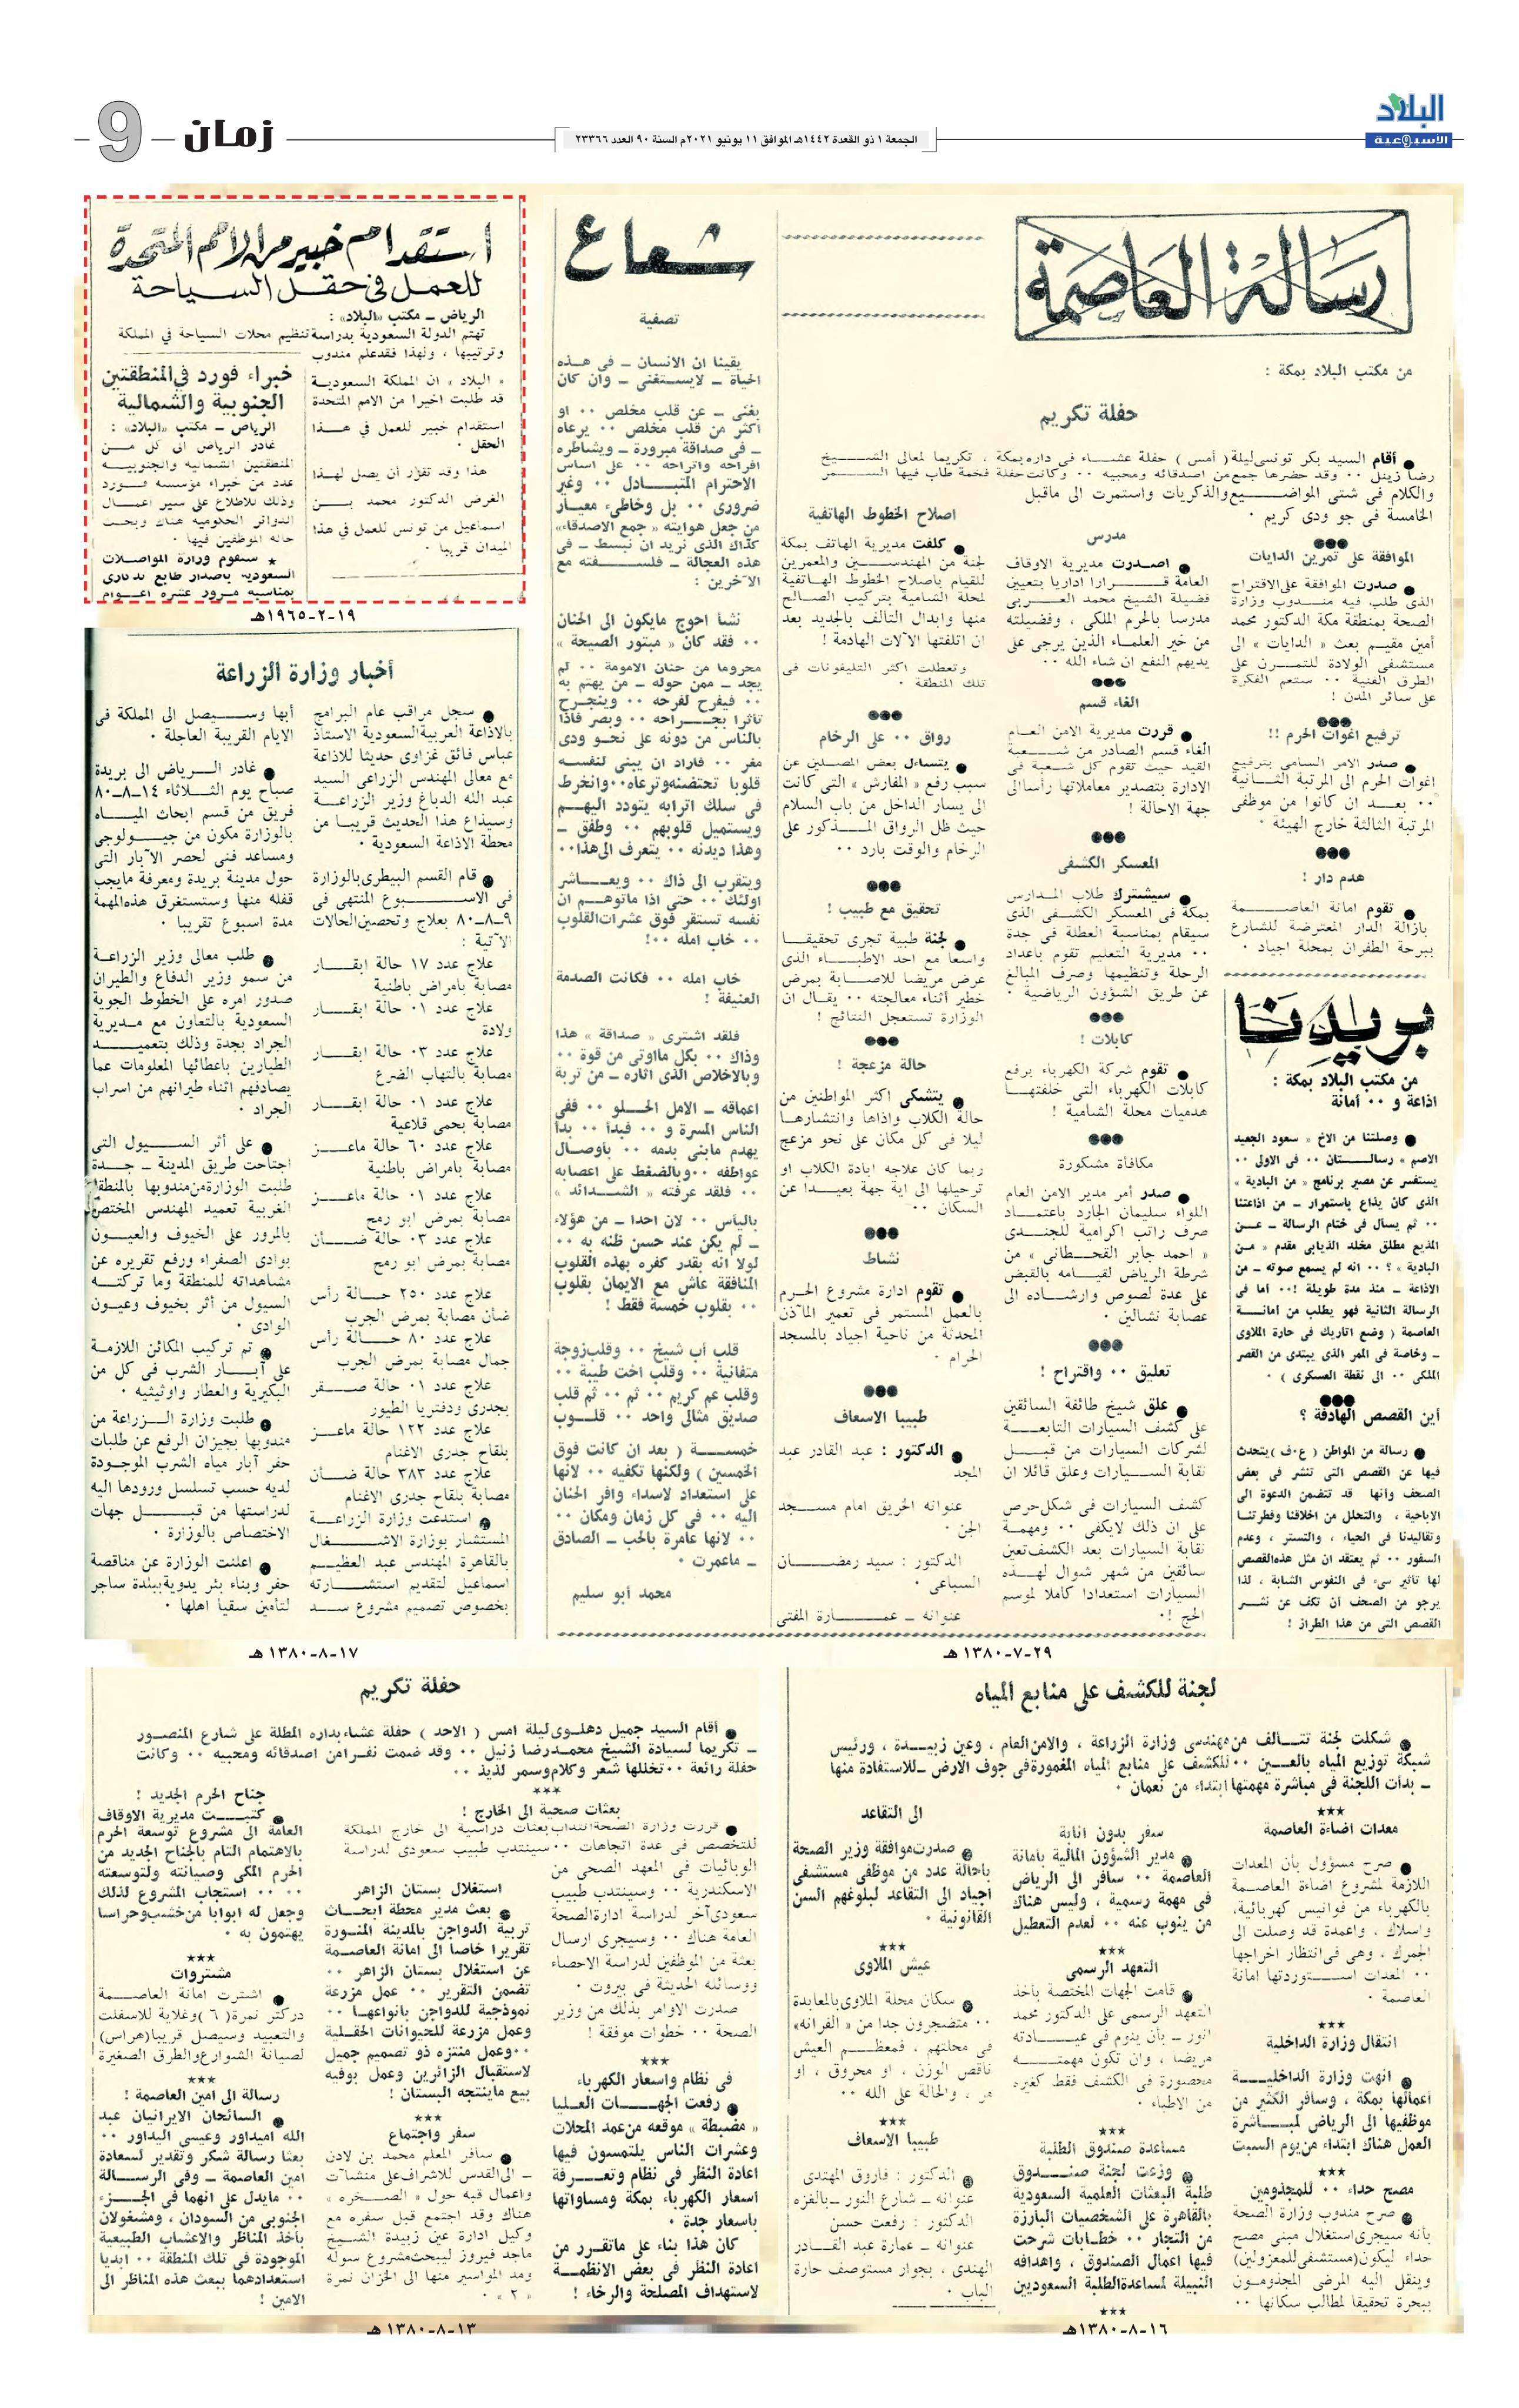 البلاد
الأسبوعية
الجمعة ١ ذو القعدة ١٤٤٢هـ الموافق ١١ يونيو ٢٠٢١م السنة ٩٠ العدد ٢٣٣٦٦
زمان
9
رسالة العاصمة
من مكتب البلاد بمكة :
حفلة تكريم
● أقام السيد بكر تونسى ليلة ( أمس ) حفلة عشـــاء فى داره بمكة ، تكريما لمعالى الشـــيخ
رضا زينل ٠٠ وقد حضرها جمع من اصدقائه ومحبيه ٠٠ وكانت حفلة فخمة طاب فيها الســـمر
والكلام فى شتى المواضـــيع والذكريات واستمرت الى ماقبل
الخامسة فى جو ودى كريم ٠
الموافقة على تمرين الدايات
● صدرت الموافقة على الاقتراح
الذى طلب فيه منـــدوب وزارة
الصحة بمنطقة مكة الدكتور محمد
أمين مقيـــم بعث « الدايات » الى
مستشفى الولادة للتمـــرن على
الطرق الفنية ٠٠ ستعم الفكرة
على سائر المدن !
ترفيع اغوات الحرم !!
● صدر الامر السامى بترفيع
اغوات الحرم الى المرتبة الثـــانية
٠٠ بعـــد ان كانوا من موظفى
المرتبة الثالثة خارج الهيئة ٠
هدم دار !
● تقوم امانة العاصـــمة
بازالة الدار المعترضة للشارع
ببرحة الطفران بمحلة اجياد ٠
مدرس
● اصـدرت مديرية الاوقاف
العامة قـــرارا اداريا بتعيين
فضيلة الشيخ محمد العـــربى
مدرسا بالحرم الملكى ، وفضيلته
من خير العلمـاء الذين يرجى على
يديهم النفع ان شاء الله ٠٠
الغاء قسم
● قررت مديرية الامن العـــام
الغاء قسم الصادر من شـــعبة
القيد حيث تقوم كل شـعبة فى
الادارة بتصدير معاملاتها رأسا الى
جهة الاحالة !
المعسكر الكشفى
● سيشترك طلاب المـدارس
بمكة فى المعسكر الكشـــفى الذى
سيقام بمناسبة العطلة فى جدة
٠٠ مديرية التعليم تقوم باعداد
الرحلة وتنظيمها وصرف المبالغ
عن طريق الشؤون الرياضية ٠
كابلات !
● تقوم شركة الكهرباء برفع
كابلات الكهرباء التى خلفتهـــا
هدميات محلة الشامية !
مكافأة مشكورة
● صدر أمر مدير الامن العام
اللواء سليمان الجارد باعتمـــاد
صرف راتب اكرامية للجنـــدى
« احمد جابر القحـــطانى » من
شرطة الرياض لقيـامه بالقبض
على عدة لصوص وارشـــاده الى
عصابة نشالين ٠
تعليق ٠٠ واقتراح !
● علق شيخ طائفة السائقين
على كشف السيارات التابعـــة
لشركات السيارات من قبـــل
نقابة الســـيارات وعلق قائلا ان
كشف السيارات فى شكل حرص
على ان ذلك لايكفى ٠٠ ومهمـة
نقابة السيارات بعد الكشف تعين
سائقين من شهر شوال لهـــذه
السيارات استعدادا كاملا لموسم
الحج !٠
اصلاح الخطوط الهاتفية
● كلفت مديرية الهاتف بمكة
لجنة من المهندســـين والمعمرين
للقيام باصلاح الخطوط الهـاتفية
لمحلة الشامية بتركيب الصـــالح
منها وابدال التالف بالجديد بعد
ان اتلفتها الآلات الهادمة !
وتعطلت اكثر التليفونات فى
تلك المنطقة ٠
رواق ٠٠ على الرخام
● يتساءل بعض المصـــلين عن
سبب رفع « المفارش » التى كانت
الى يسار الداخل من باب السلام
حيث ظل الرواق المـــذكور على
الرخام والوقت بارد ٠٠
تحقيق مع طبيب !
● لجنة طبية تجرى تحقيقـــا
واسعا مع احد الاطبـــاء الذى
عرض مريضا للاصـــابة بمرض
خطير أثناء معالجته ٠٠ يقـال ان
الوزارة تستعجل النتائج !
حالة مزعجة !
● يتشكى اكثر المواطنين من
حالة الكلاب واذاها وانتشارهـا
ليلا فى كل مكان على نحو مزعج
ربما كان علاجه ابادة الكلاب او
ترحيلها الى اية جهة بعيـــدا عن
السكان ٠٠
نشاط
● تقوم ادارة مشروع الحـرم
بالعمل المستمر فى تعمير المآذن
المحدثة من ناحية اجياد بالمسجد
الحرام ٠
طبيبا الاسعاف
● الدكتور : عبد القادر عبد
المجد
عنوانه الحريق امام مســـجد
الجن ٠
الدكتور : سيد رمضـــان
السباعى ٠
عنوانه – عمـــارة المفتى
بريدنا
من مكتب البلاد بمكة :
اذاعة و ٠٠ أمانة
● وصلتنا من الاخ « سعود الجعيد
الاصم » رسالـــتان ٠٠ فى الاولى ٠٠
يستفسر عن مصير برنامج « من البادية »
الذى كان يذاع باستمرار – من اذاعتنا
٠٠ ثم يسأل فى ختام الرسالة – عـــن
المذيع مطلق مخلد الذيابى مقدم « مـن
البادية » ؟ ٠٠ انه لم يسمع صوته – من
الاذاعة – منذ مدة طويلة !٠٠ اما فى
الرسالة الثانية فهو يطلب من امانـــة
العاصمة ( وضع اتاريك فى حارة الملاوى
– وخاصة فى الممر الذى يبتدى من القصر
الملكى ٠٠ الى نقطة العسكرى ) ٠
أين القصص الهادفة ؟
● رسالة من المواطن ( ع٠ف ) يتحدث
فيها عن القصص التى تنشر فى بعض
الصحف وأنها قد تتضمن الدعوة الى
الاباحية ، والتحلل من اخلاقنا وفطرتنـا
وتقاليدنا فى الحياء ، والتستر ، وعدم
السفور ٠٠ ثم يعتقد ان مثل هذه القصص
لها تأثير سىء فى النفوس الشابة ، لذا
يرجو من الصحف أن تكف عن نشـــر
القصص التى من هذا الطراز !
شعاع
تصفية
يقينا ان الانسان – فى هـــذه
الحياة – لايســـتغنى – وان كان
بغنى – عن قلب مخلص ٠٠ او
أكثر من قلب مخلص ٠٠ يرعاه
– فى صداقة مبرورة – ويشاطره
افراحه واتراحه ٠٠ على اساس
الاحترام المتبـــادل ٠٠ وغير
ضرورى ٠٠ بل وخاطىء معيـار
من جعل هوايته « جمع الاصدقاء»
كذاك الذى نريد ان نبسط – فى
هذه العجالة – فلســـفته مع
الآخرين :
نشأ احوج مايكون الى الحنان
٠٠ فقد كان « مبتور الصيحة »
محروما من حنان الامومة ٠٠ لم
يجد – ممن حوله – من يهتم به
٠٠ فيفرح لفرحه ٠٠ وينجـــرح
تأثرا بجـــراحه ٠٠ وبصر فاذا
بالناس من دونه على نحـو ودى
مغر ٠٠ فأراد ان يبنى لنفســـه
قلوبا تحتضنه وترعاه ٠٠ وانخرط
فى سلك اترابه يتودد اليهـــم
ويستميل قلوبهم ٠٠ وطفق –
وهذا ديدنه ٠٠ يتعرف الى هذا ٠٠
ويتقرب الى ذاك ٠٠ ويعـــاشر
اولئك ٠٠ حتى اذا ماتوهـــم ان
نفسه تستقر فوق عشرات القلوب
٠٠ خاب امله ٠٠!
خاب امله ٠٠ فكانت الصدمة
العنيفة !
فلقد اشترى « صداقة » هذا
وذاك ٠٠ بكل ماأوتى من قوة ٠٠
وبالاخلاص الذى اثاره – من تربة
اعماقه – الامل الحـــلو ٠٠ ففى
الناس المسرة و ٠٠ فبدأ ٠٠ بدأ
يهدم مابنى بدمه ٠٠ بأوصـــال
عواطفه ٠٠ وبالضغط على اعصابه
٠٠ فلقد عرفته « الشـــدائد »
باليأس ٠٠ لان احدا – من هؤلاء
– لم يكن عند حسن ظنه به ٠٠
لولا انه بقدر كفره بهذه القلوب
المنافقة عاش مع الايمان بقلوب
٠٠ بقلوب خمسة فقط !
قلب أب شيخ ٠٠ وقلب زوجة
متفانية ٠٠ وقلب اخت طيبة ٠٠
وقلب عم كريم ٠٠ ثم ٠٠ ثم قلب
صديق مثالى واحد ٠٠ قلـــوب
خمســـة ( بعد ان كانت فوق
الخمسين ) ولكنها تكفيه ٠٠ لانها
على استعداد لاسداء وافر الحنان
اليه ٠٠ فى كل زمان ومكان ٠٠
٠٠ لانها عامرة بالحب – الصادق
– ماعمرت ٠
محمد أبو سليم
٢٩-٧-١٣٨٠ هـ
استقدام خبير من الامم المتحدة
للعمل فى حقل السياحة
الرياض – مكتب «البلاد» :
تهتم الدولة السعودية بدراسة تنظيم محلات السياحة في المملكة
وترتيبها ، ولهذا فقد علم مندوب
« البلاد » ان المملكة السعوديـة
قد طلبت اخيرا من الامم المتحدة
استقدام خبير للعمل في هـــذا
الحقل ٠
هذا وقد تقرر أن يصل لهـذا
الغرض الدكتور محمد بـــن
اسماعيل من تونس للعمل في هذا
الميدان قريبا ٠
خبراء فورد في المنطقتين
الجنوبية والشمالية
الرياض – مكتب «البلاد» :
غادر الرياض الى كل مـــن
المنطقتين الشمالية والجنوبيـــة
عدد من خبراء مؤسسه فـورد
وذلك للاطلاع على سير اعمـــال
الدوائر الحكوميه هناك وبحث
حاله الموظفين فيها ٠
★ ستقوم وزارة المواصـلات
السعوديه باصدار طابع تذكارى
بمناسبه مرور عشره اعـــوام
١٩-٢-١٩٦٥هـ
أخبار وزارة الزراعة
● سجل مراقب عام البرامج
بالاذاعة العربية السعودية الاستاذ
عباس فائق غزاوى حديثا للاذاعة
مع معالى المهندس الزراعى السيد
عبد الله الدباغ وزير الزراعـــة
وسيذاع هذا الحديث قريبـا من
محطة الاذاعة السعودية ٠
● قام القسم البيطرى بالوزارة
فى الاســـبوع المنتهى فى
٩-٨-٨٠ بعلاج وتحصين الحالات
الآتية :
علاج عدد ١٧ حالة ابقـــار
مصابة بأمراض باطنية
علاج عدد ٠١ حالة ابقـــار
ولادة
علاج عدد ٠٣ حالة ابقـــار
مصابة بالتهاب الضرع
علاج عدد ٠١ حالة ابقـــار
مصابة بحمى قلاعية
علاج عدد ٦٠ حالة ماعـــز
مصابة بامراض باطنية
علاج عدد ٠١ حالة ماعـــز
مصابة بمرض ابو رمح
علاج عدد ٠٣ حالة ضـــان
مصابة بمرض ابو رمح
علاج عدد ٢٥٠ حـــالة رأس
ضان مصابة بمرض الجرب
علاج عدد ٨٠ حـــالة رأس
جمال مصابة بمرض الجرب
علاج عدد ٠١ حالة صـــقر
بجدرى ودفتريا الطيور
علاج عدد ١٢٢ حالة ماعـــز
بلقاح جدرى الاغنام
علاج عدد ٣٨٣ حالة ضـــان
مصابة بلقاح جدرى الاغنام
● استدعت وزارة الزراعـــة
المستشار بوزارة الاشـــغال
بالقاهرة المهندس عبد العظيـــم
اسماعيل لتقديم استشـــارته
بخصوص تصميم مشروع ســـد
أبها وســـيصل الى المملكة فى
الايام القريبة العاجلة ٠
● غادر الـــرياض الى بريدة
صباح يوم الثـــلاثاء ١٤-٨-٨٠
فريق من قسم ابحاث الميـــاه
بالوزارة مكون من جيـــولوجى
ومساعد فنى لحصر الآبار التى
حول مدينة بريدة ومعرفة مايجب
قفله منها وستستغرق هذه المهمة
مدة اسبوع تقريبا ٠
● طلب معالى وزير الزراعـة
من سمو وزير الدفاع والطيران
صدور امره على الخطوط الجوية
السعودية بالتعاون مع مـديرية
الجراد بجدة وذلك بتعميـــد
الطيارين باعطائها المعلومات عما
يصادفهم اثناء طيرانهم من اسراب
الجراد ٠
● على أثر الســـيول التى
اجتاحت طريق المدينة – جـــدة
طلبت الوزارة من مندوبها بالمنطقة
الغربية تعميد المهندس المختص
بالمرور على الخيوف والعيـــون
بوادى الصفراء ورفع تقريره عن
مشاهداته للمنطقة وما تركتـه
السيول من أثر بخيوف وعيـون
الوادى ٠
● تم تركيب المكائن اللازمـة
على آبـــار الشرب فى كل من
البكيرية والعطار واوثيثيه ٠
● طلبت وزارة الـــزراعة من
مندوبها بجيزان الرفع عن طلبات
حفر آبار مياه الشرب الموجـودة
لديه حسب تسلسل ورودها اليه
لدراستها من قبـــل جهات
الاختصاص بالوزارة ٠
● اعلنت الوزارة عن مناقصة
حفر وبناء بئر يدوية ببلدة ساجر
لتأمين سقيا اهلها ٠
١٧-٨-١٣٨٠ هـ
لجنة للكشف على منابع المياه
● شكلت لجنة تتـــألف من مهندسى وزارة الزراعة ، والامن العام ، وعين زبيـــدة ، ورئيس
شبكة توزيع المياه بالعـــين ٠٠ للكشف على منابع المياه المغمورة فى جوف الارض – للاستفادة منها
– بدأت اللجنة فى مباشرة مهمتها ابتداء من نعمان ٠
★★★
معدات اضاءة العاصمة
● صرح مسؤول بأن المعدات
اللازمة لمشروع اضاءة العاصـمة
بالكهرباء من فوانيس كهربائية،
واسلاك ، واعمدة قد وصلت الى
الجمرك ، وهى فى انتظار اخراجها
٠٠ المعدات اســـتوردتها امانة
العاصمة ٠
★★★
انتقال وزارة الداخلية
● انهت وزارة الداخليـــة
أعمالها بمكة ، وسافر الكثير من
موظفيها الى الرياض لمبـــاشرة
العمل هناك ابتداء من يوم السبت
★★★
مصح حداء ٠٠ للمجذومين
● صرح مندوب وزارة الصحة
بأنه سيجرى استغلال مبنى مصح
حداء ليكون (مستشفى للمعزولين)
وينقل اليه المرضى المجذومـون
ببحرة تحقيقا لمطالب سكانها ٠٠
سفر بدون انابة
● مدير الشؤون المالية بأمانة
العاصمة ٠٠ سافر الى الرياض
فى مهمة رسمية ، وليس هناك
من ينوب عنه ٠٠ لعدم التعطيل
★★★
التعهد الرسمى
● قامت الجهات المختصة بأخذ
التعهد الرسمى على الدكتور محمد
انور – بأن ينوم فى عيـــادته
مريضا ، وان تكون مهمتـــه
محصورة فى الكشف فقط كغيره
من الاطباء ٠
★★★
مساعدة صندوق الطلبة
● وزعت لجنة صنـــدوق
طلبة البعثات العلمية السعودية
بالقاهرة على الشخصيات البارزة
من التجار ٠٠ خطـابات شرحت
فيها اعمال الصندوق ، واهدافه
النبيلة لمساعدة الطلبة السعوديين
★★★
الى التقاعد
● صدرت موافقة وزير الصحة
باحالة عدد من موظفى مستشفى
اجياد الى التقاعد لبلوغهم السن
القانونية ٠
★★★
عيش الملاوى
● سكان محلة الملاوى بالمعابدة
٠٠ متضجرون جدا من « الفرانه»
فى محلتهم ، فمعظـــم العيش
ناقص الوزن ، او محروق ، او
مر ، والحالة على الله ٠٠
★★★
طبيبا الاسعاف
● الدكتور : فاروق المهتدى
عنوانه – شارع النور – بالغزه
الدكتور : رفعت حسن
عنوانه – عمارة عبد القـــادر
الهندى ، بجوار مستوصف حارة
الباب ٠
١٦-٨-١٣٨٠هـ
حفلة تكريم
● أقام السيد جميل دهلـوى ليلة امس ( الاحد ) حفلة عشاء بداره المطلة على شارع المنصـور
– تكريما لسيادة الشيخ محمـد رضا زنيل ٠٠ وقد ضمت نفـرا من اصدقائه ومحبيه ٠٠ وكانت
حفلة رائعة ٠٠ تخللها شعر وكلام وسمر لذيذ ٠٠
★★★
بعثات صحية الى الخارج !
● قررت وزارة الصحة انتداب بعثات دراسية الى خارج المملكة
للتخصص فى عدة اتجاهات ٠٠ سينتدب طبيب سعودى لدراسة
الوبائيات فى المعهد الصحى من
الاسكندرية ٠٠ وسينتدب طبيب
سعودى آخر لدراسة ادارة الصحة
العامة هناك ٠٠ وسيجرى ارسال
بعثة من الموظفين لدراسة الاحصاء
ووسائله الحديثة فى بيروت ٠
صدرت الاوامر بذلك من وزير
الصحة ٠٠ خطوات موفقة !
★★★
فى نظام واسعار الكهرباء
● رفعت الجهـــات العـــليا
« مضبطة » موقعه من عمد المحلات
وعشرات الناس يلتمسون فيها
اعادة النظر فى نظام وتعـــرفة
اسعار الكهرباء بمكة ومساواتها
بأسعار جدة ٠
كان هذا بناء على ماتقـرر من
اعادة النظر فى بعض الانظمـــة
لاستهداف المصلحة والرخاء !
استغلال بستان الزاهر
● بعث مدير محطة ابحـــاث
تربية الدواجن بالمدينة المنـورة
تقريرا خاصا الى امانة العاصـمة
عن استغلال بستان الزاهر ٠٠
تضمن التقرير ٠٠ عمل مزرعة
نموذجية للدواجن بانواعهـا ٠٠
وعمل مزرعة للحيوانات الحقـلية
٠٠ وعمل منتزه ذو تصميم جميل
لاستقبال الزائرين وعمل بوفيه
بيع ماينتجه البستان !
★★★
سفر واجتماع
● سافر المعلم محمد بن لادن
– الى القدس للاشراف على منشـآت
واعمال قبه حول « الصـــخره »
هناك وقد اجتمع قبل سفره مع
وكيل ادارة عين زبيدة الشـــيخ
ماجد فيروز ليبحث مشروع سوله
ومد المواسير منها الى الخزان نمرة
« ٢ »
جناح الحرم الجديد !
● كتبـــت مديرية الاوقاف
العامة الى مشروع توسعة الحرم
بالاهتمام التام بالجناح الجديد من
الحرم المكى وصيانته ولتوسعته
٠٠ استجاب المشروع لذلك
وجعل له ابوابا من خشب وحراسا
يهتمون به ٠
★★★
مشتروات
● اشترت امانة العاصـــمة
دركتر نمرة ( ٦ ) وغلاية للاسفلت
والتعبيد وسيصل قريبا (هراس)
لصيانة الشوارع والطرق الصغيرة
★★★
رسالة الى امين العاصمة !
● السائحان الايرانيان عبد
الله اميداور وعيسى اليداور ٠٠
بعثا رسالة شكر وتقدير لسعادة
امين العاصمة – وفى الرســـالة
٠٠ مايدل على انهما فى الجـــزء
الجنوبى من السودان ، ومشغولان
بأخذ المناظر والاعشاب الطبيعية
الموجودة فى تلك المنطقة ٠٠ ابديا
استعدادهما ببعث هذه المناظر الى
الامين !
١٣-٨-١٣٨٠ هـ